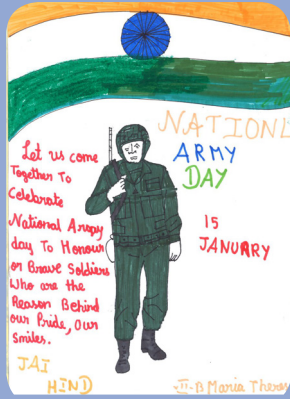 NATIONL
ARMY
DAY
15
JANUARY
Let us come
Together To
Celebrate
National Army
day To Honour
or Brave Soldiers
Who are the
Reason Behind
our Pride, Our
Smiles.
JAI
HIND
-II-B Maria Theres